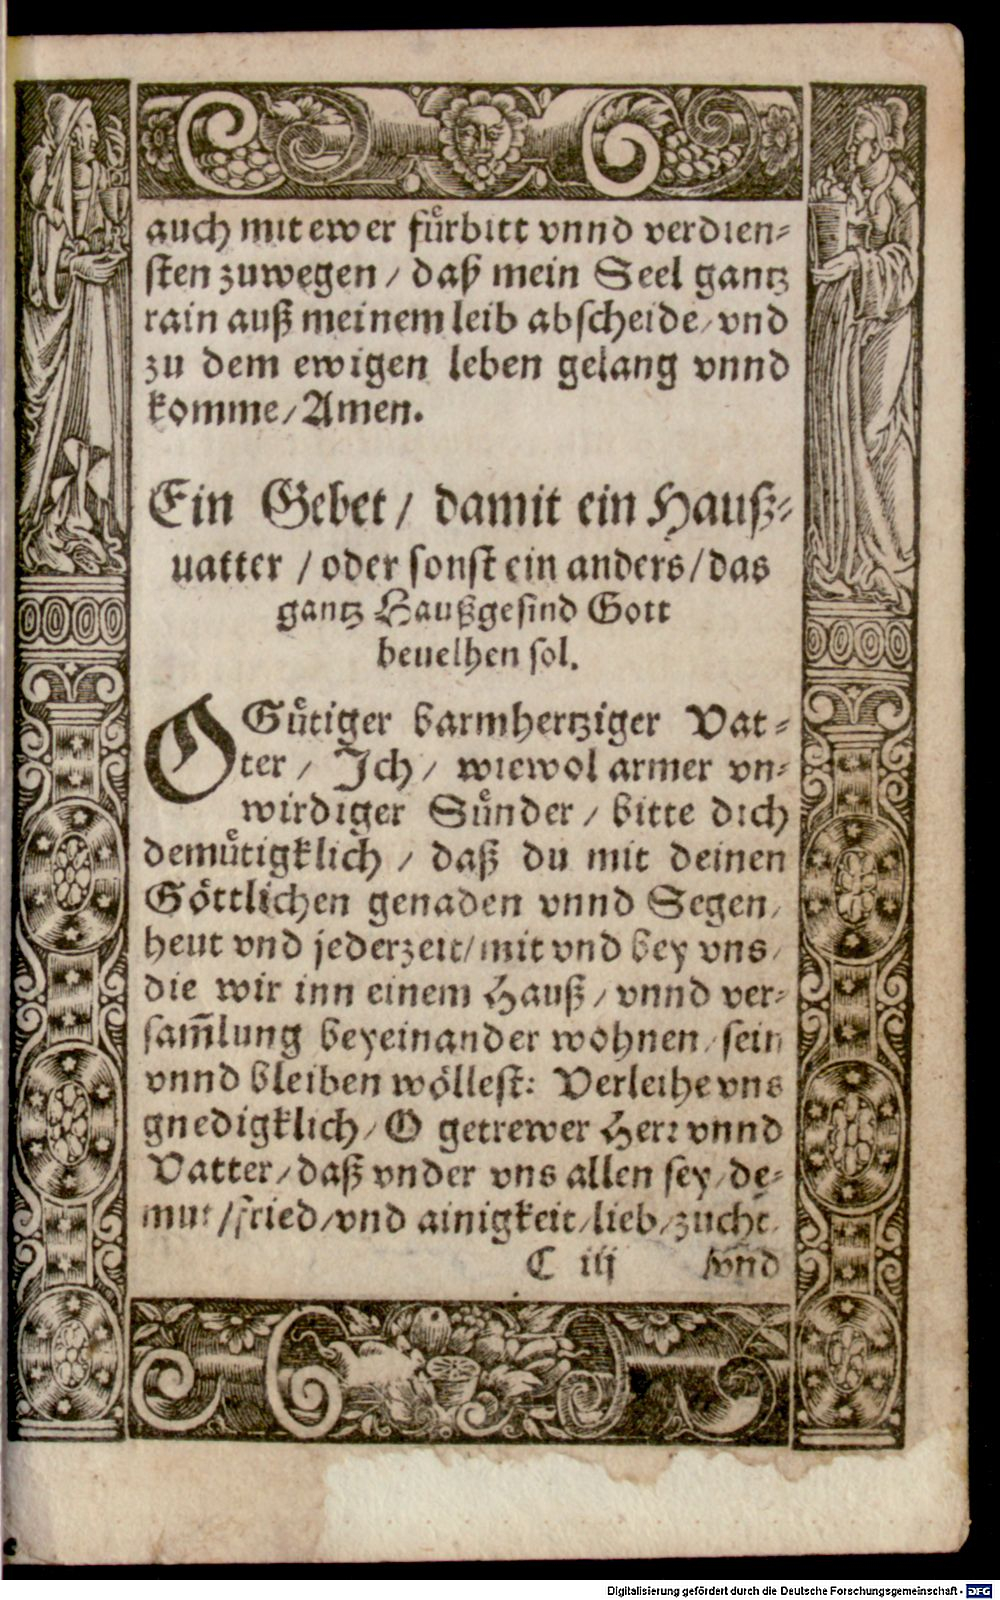 auch mit ewer fuͤrbitt vnnd verdien⸗
sten zuwegen / daß mein Seel gantz
rain auß meinem leib abscheide / vnd
zu dem ewigen leben gelang vnnd
komme / Amen.
Ein Gebet / damit ein Hauß⸗
uatter / oder sonst ein anders / das
gantz Haußgesind Gott
beuelhen sol.
O Guͤtiger barmhertziger Vat⸗
ter / Jch / wiewol armer vn⸗
wirdiger Suͤnder / bitte dich
demuͤtigklich / daß du mit deinen
Goͤttlichen genaden vnnd Segen /
heut vnd jederzeit / mit vnd bey vns /
die wir inn einem Hauß / vnnd ver⸗
sam̃lung beyeinander wohnen / sein
vnnd bleiben woͤllest: Verleihe vns
gnedigklich / O getrewer Herr vnnd
Vatter / daß vnder vns allen sey / de⸗
mut / fried / vnd ainigkeit / lieb / zucht /
C iij /vnd
Digitalisierung gefördert durch die Deutsche Forschungsgemeinschaft - DFG